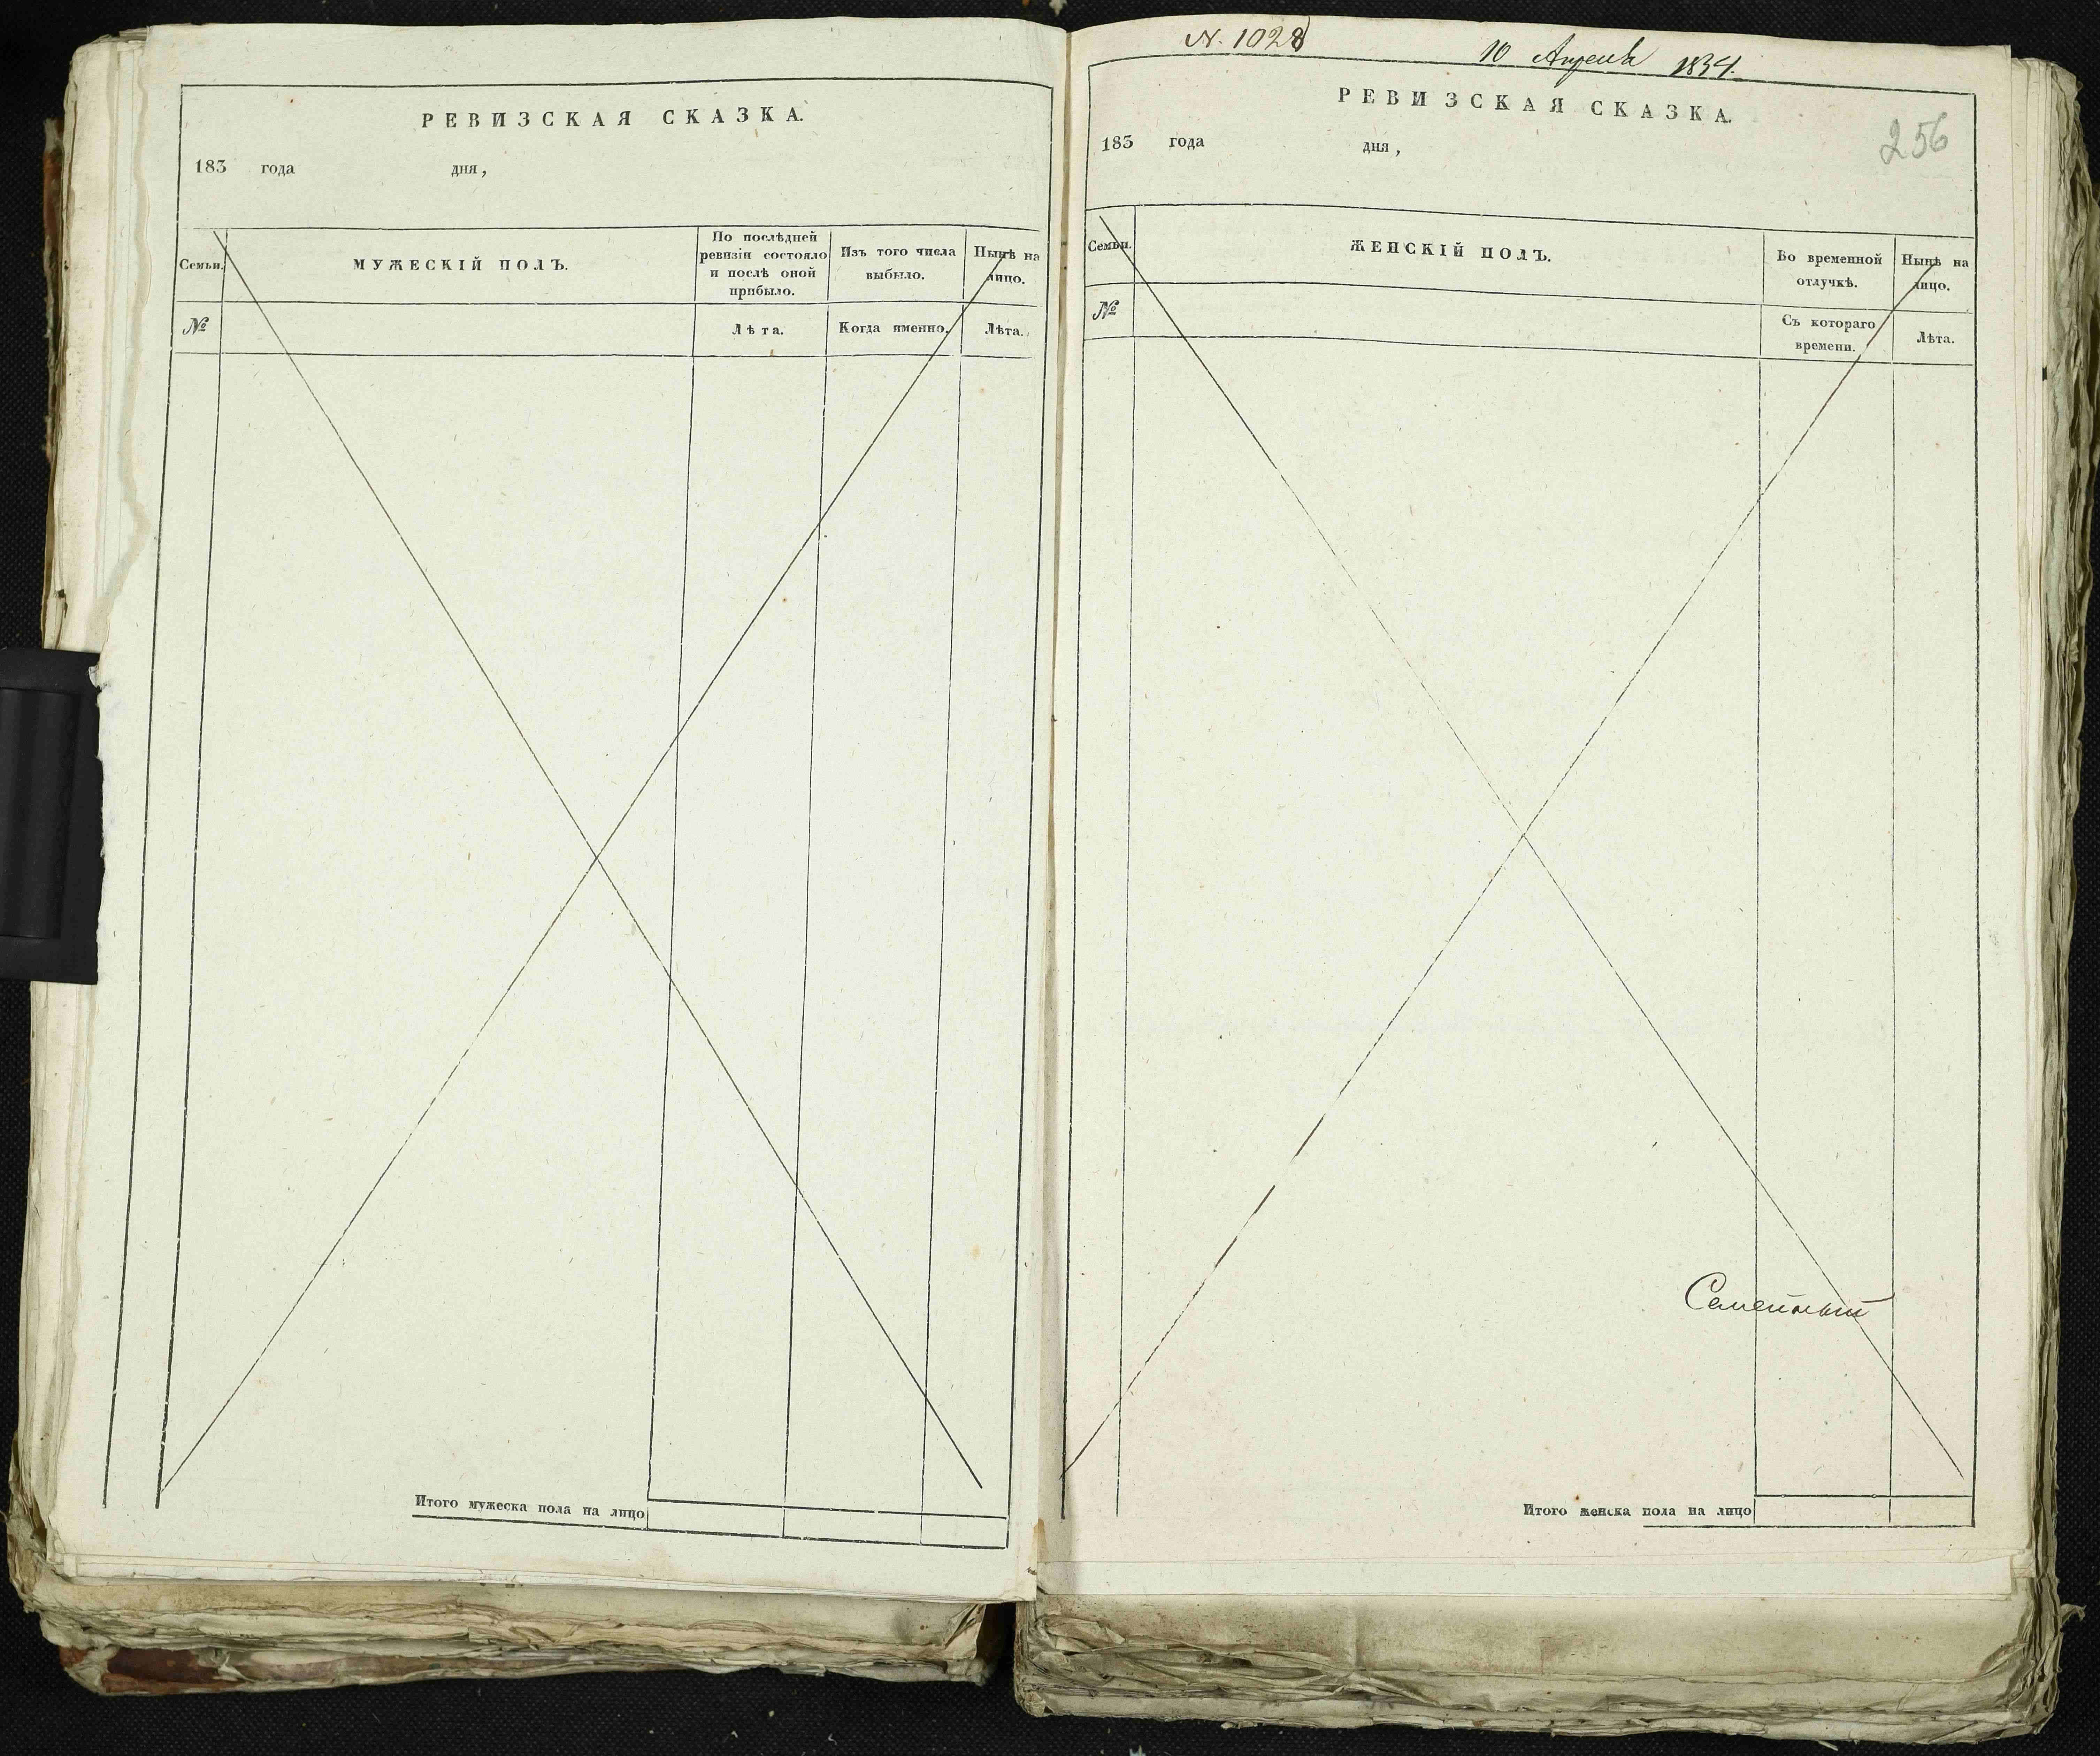 РЕВИЗСКАЯ СКАЗКА.
183 года дня,
Семьи.
МУЖЕСКІЙ ПОЛЪ.
По послѣдней
ревизіи состояло
и послѣ оной
прибыло.
Изъ того числа
выбыло.
Нынѣ на
лицо.
№
Лѣта.
Когда именно.
Лѣта.
Итого мужеска пола на лицо
N. 1028
10 Апреля 1834.
РЕВИЗСКАЯ СКАЗКА.
256
183 года дня,
Семьи.
ЖЕНСКІЙ ПОЛЪ.
Во временной
отлучкѣ.
Нынѣ на
лицо.
№
Съ котораго
времени.
Лѣта.
Семейный
Итого женска пола на лицо